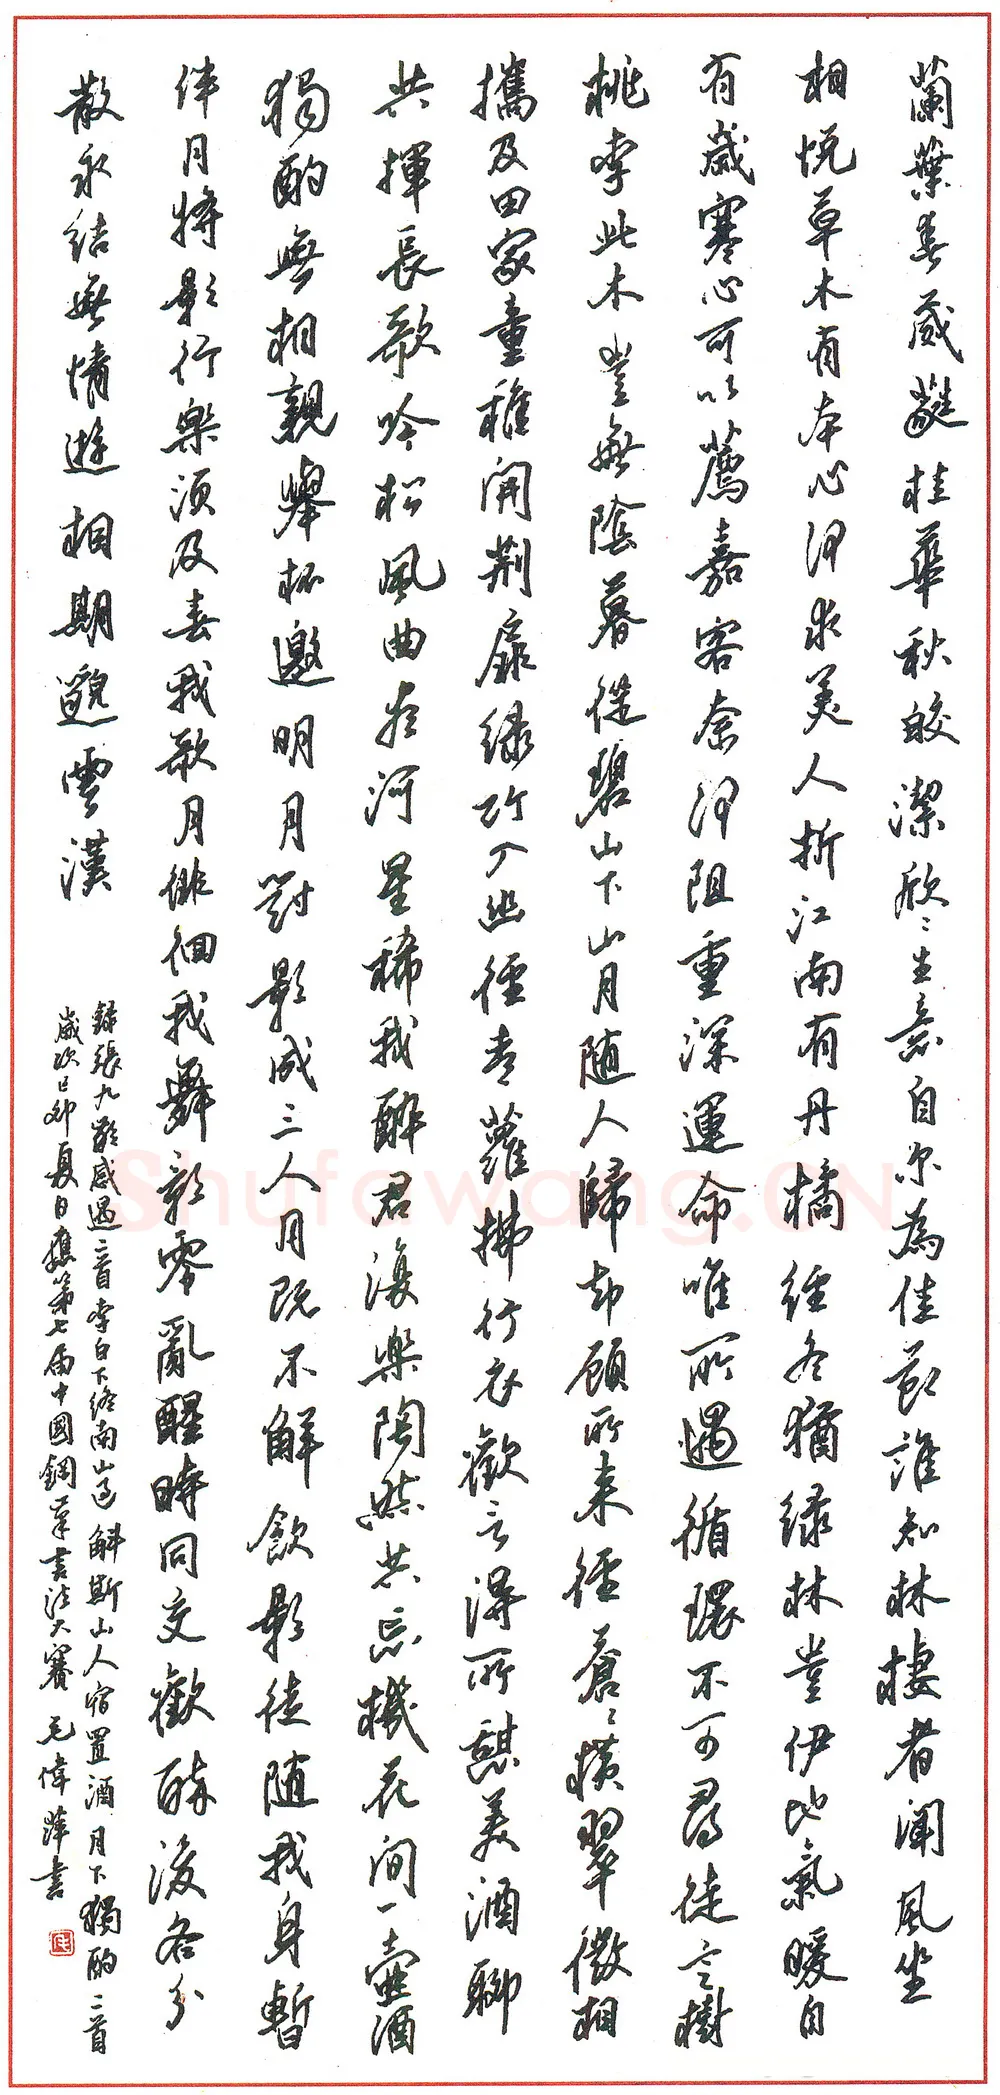 蘭葉春葳蕤桂華秋皎潔欣〻生意自尔為佳節誰知林棲者聞風坐
相悅草木有本心何求美人折江南有丹橘經冬猶綠林豈伊地氣暖自
有歲寒心可以薦嘉客奈何阻重深運命唯所遇循環不可尋徒言樹
桃李此木豈無陰暮從碧山下山月隨人歸却顧所來徑蒼〻橫翠微相
攜及田家童稚開荊扉綠竹入幽徑青蘿拂行衣歡言得所憩美酒聊
共揮長歌吟松風曲盡河星稀我醉君復樂陶然共忘機花間一壺酒
獨酌無相親舉杯邀明月對影成三人月既不解飲影徒隨我身暫
伴月將影行樂須及春我歌月徘徊我舞影零亂醒時同交歡醉後各分
散永結無情遊相期邈雲漢
錄張九齡感遇二首李白下終南山過斛斯山人宿置酒月下獨酌二首
歲次己卯夏日應第七屆中國鋼筆書法大賽 毛偉萍書
Shufawang.CN